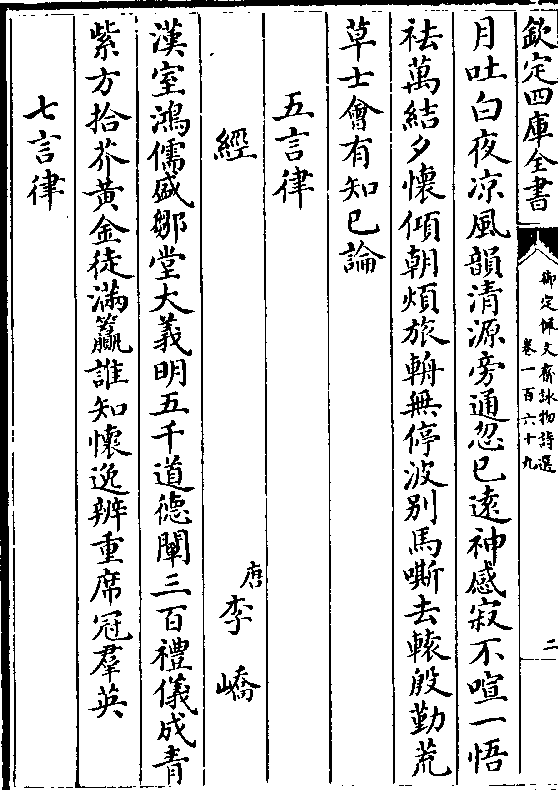 欽定四庫全書
御定佩文齋詠物詩選
卷一百六十九
二
月吐白夜凉風韻清源旁通忽已遠神感寂不喧一悟
袪萬結夕懷傾朝煩旅輈無停波别馬嘶去轅殷勤荒
草士會有知已論
五言律
經
唐李嶠
漢室鴻儒盛鄒堂大義明五千道德闡三百禮儀成青
紫方拾芥黃金徒滿籯誰知懷逸辨重席冠羣英
七言律